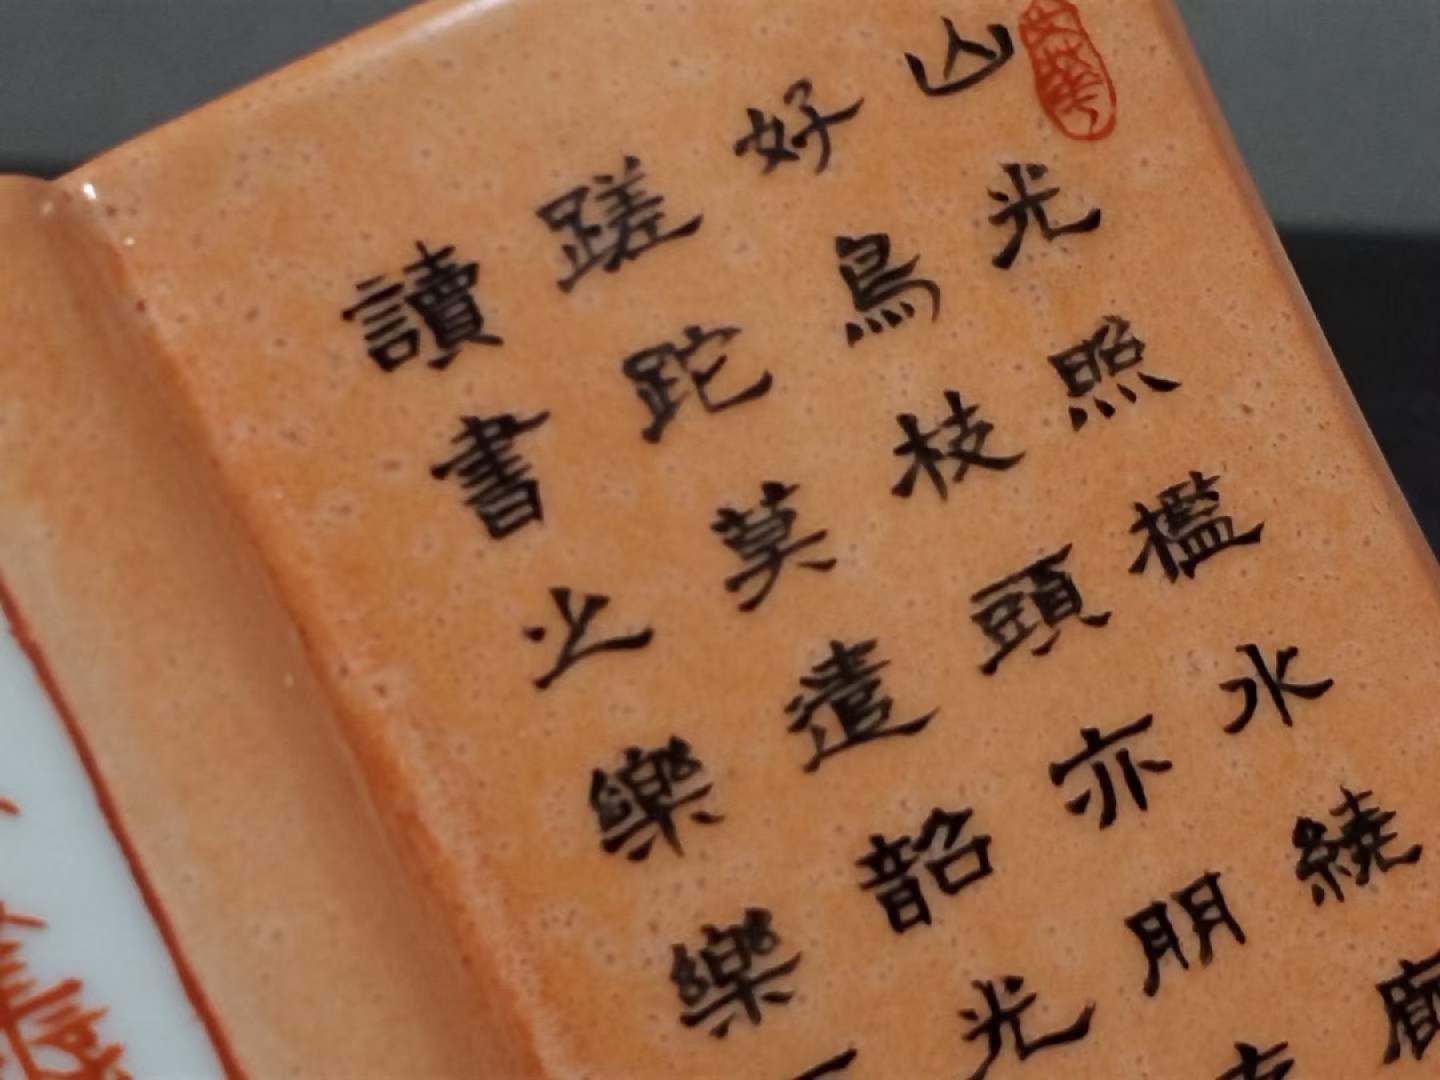 山光照檻水繞廊
好鳥枝頭亦朋
蹉跎莫遣韶光
讀書之樂樂